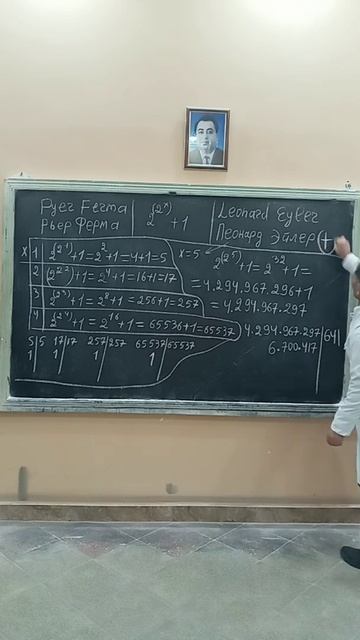 Pyer Ferma
Рьер Ферма
2^(2^x) + 1
Leonard Eyler
Леонард Эйлер (+
x 1 2^(2^1)+1=2^2+1=4+1=5
2 2^(2^2)+1=2^4+1=16+1=17
3 2^(2^3)+1=2^8+1=256+1=257
4 2^(2^4)+1=2^16+1=65536+1=65537
5|5 17|17 257|257 65537|65537
1 1 1 1
x=5 2^(2^5)+1=2^32+1=
=4.294.967.296+1
=4.294.967.297
4.294.967.297|641
6.700.417